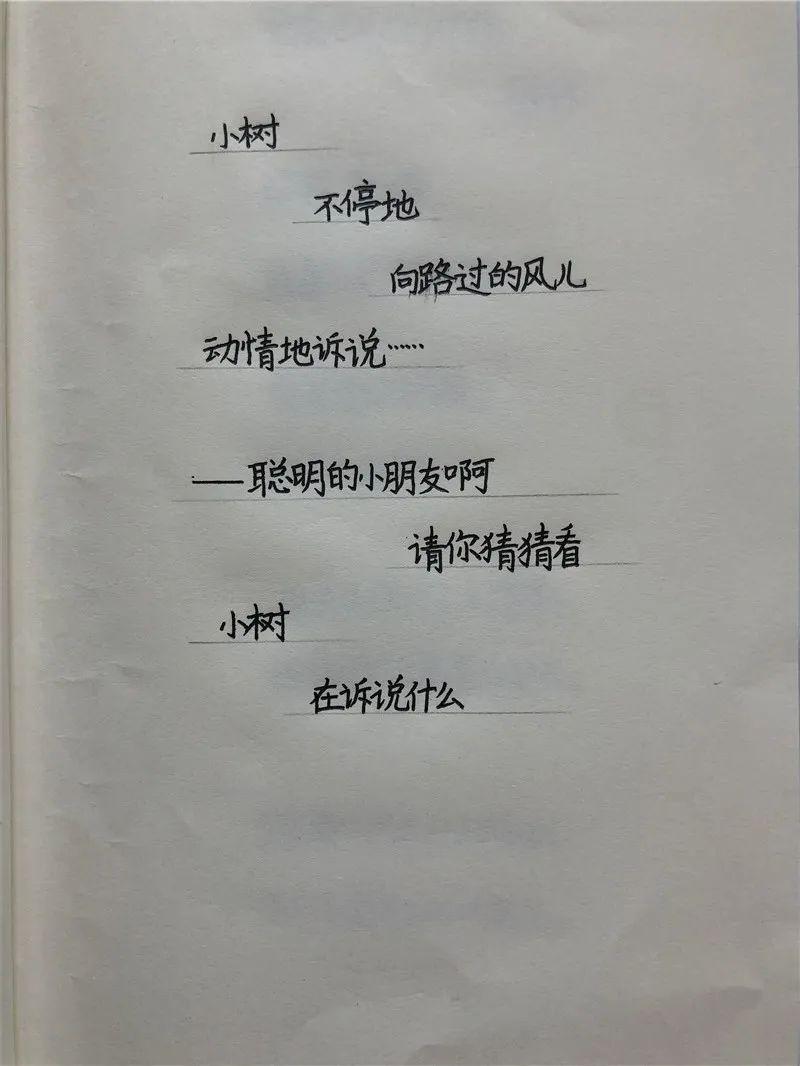 小树
不停地
向路过的风儿
动情地诉说……
——聪明的小朋友啊
请你猜猜看
小树
在诉说什么